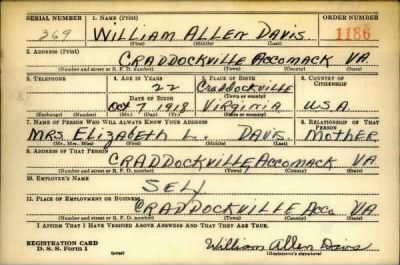 SERIAL NUMBER 1. NAME (Print) ORDER NUMBER
369 WILLIAM ALLEN DAVIS 1186
(First) (Middle) (Last)
2. ADDRESS (Print)
CRADDOCKVILLE ACCOMACK VA.
(Number and street or R. F. D. number) (Town) (County) (State)
3. TELEPHONE 4. AGE IN YEARS 5. PLACE OF BIRTH 6. COUNTRY OF CITIZENSHIP
22 CRADDOCKVILLE
DATE OF BIRTH (Town or county)
OCT 7 1918 VIRGINIA U.S.A.
(Exchange) (Number) (Mo.) (Day) (Yr.) (State or country)
7. NAME OF PERSON WHO WILL ALWAYS KNOW YOUR ADDRESS 8. RELATIONSHIP OF THAT PERSON
MRS. ELIZABETH L. DAVIS MOTHER
(Mr., Mrs., Miss) (First) (Middle) (Last)
9. ADDRESS OF THAT PERSON
CRADDOCKVILLE ACCOMACK VA
(Number and street or R. F. D. number) (Town) (County) (State)
10. EMPLOYER'S NAME
SELF
11. PLACE OF EMPLOYMENT OR BUSINESS
CRADDOCKVILLE Acco VA
(Number and street or R. F. D. number) (Town) (County) (State)
I AFFIRM THAT I HAVE VERIFIED ABOVE ANSWERS AND THAT THEY ARE TRUE.
REGISTRATION CARD
D. S. S. Form 1 William Allen Davis
(Registrant's signature)